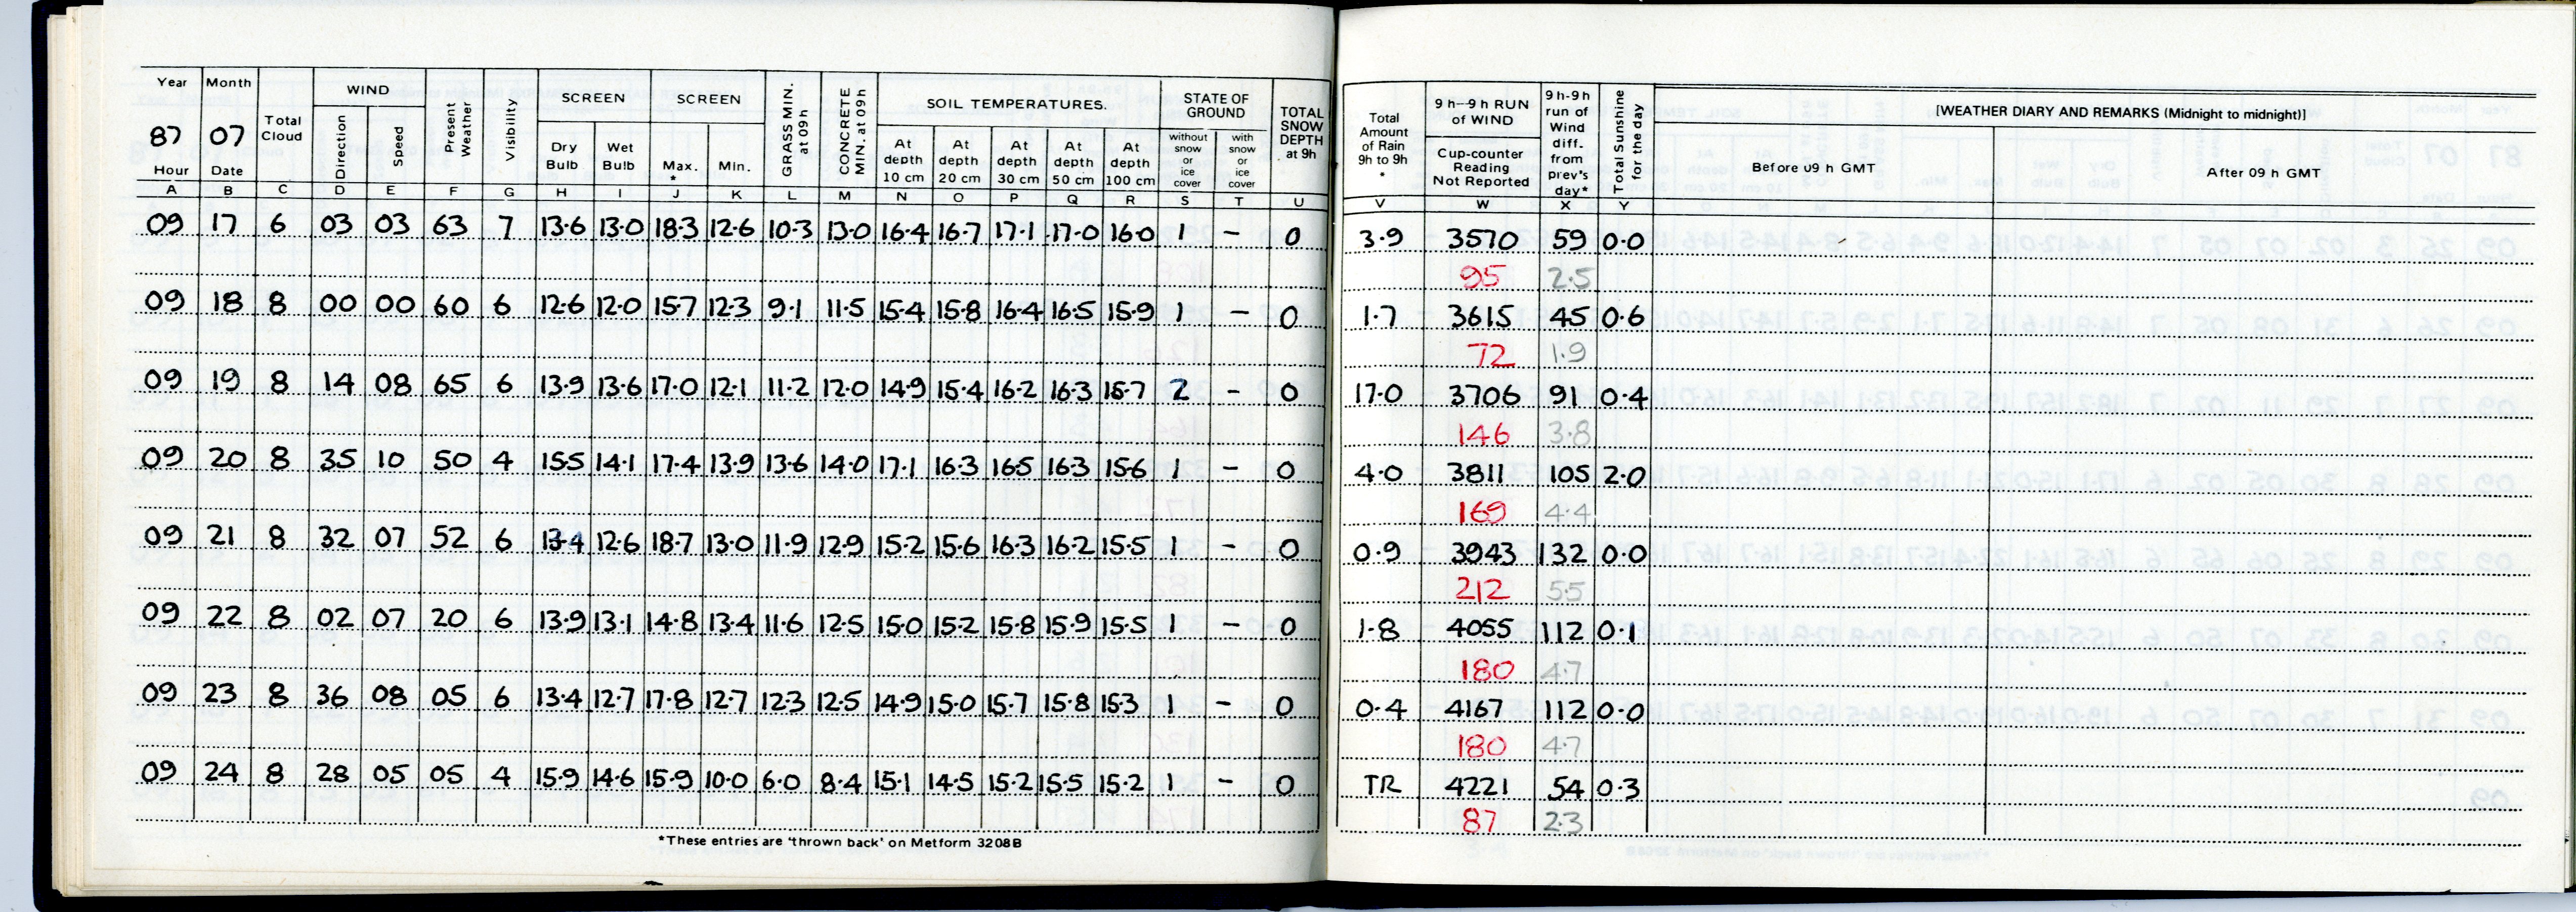 Year Month Total Cloud WIND Present Weather Visibility SCREEN SCREEN GRASS MIN. at 09h CONCRETE MIN. at 09h SOIL TEMPERATURES. STATE OF GROUND TOTAL SNOW DEPTH at 9h Total Amount of Rain 9h to 9h * 9h–9h RUN of WIND 9h-9h run of Wind diff. from prev's day* Total Sunshine for the day [WEATHER DIARY AND REMARKS (Midnight to midnight)]
87 07 Direction Speed Dry Bulb Wet Bulb Max. * Min. At depth 10 cm At depth 20 cm At depth 30 cm At depth 50 cm At depth 100 cm without snow or ice cover with snow or ice cover Cup-counter Reading Not Reported Before 09 h GMT After 09 h GMT
Hour Date
A B C D E F G H I J K L M N O P Q R S T U V W X Y
09 17 6 03 03 63 7 13.6 13.0 18.3 12.6 10.3 13.0 16.4 16.7 17.1 17.0 16.0 1 – 0 3.9 3570 59 0.0
95 2.5
09 18 8 00 00 60 6 12.6 12.0 15.7 12.3 9.1 11.5 15.4 15.8 16.4 16.5 15.9 1 – 0 1.7 3615 45 0.6
72 1.9
09 19 8 14 08 65 6 13.9 13.6 17.0 12.1 11.2 12.0 14.9 15.4 16.2 16.3 15.7 2 – 0 17.0 3706 91 0.4
146 3.8
09 20 8 35 10 50 4 15.5 14.1 17.4 13.9 13.6 14.0 17.1 16.3 16.5 16.3 15.6 1 – 0 4.0 3811 105 2.0
169 4.4
09 21 8 32 07 52 6 13.4 12.6 18.7 13.0 11.9 12.9 15.2 15.6 16.3 16.2 15.5 1 – 0 0.9 3943 132 0.0
212 5.5
09 22 8 02 07 20 6 13.9 13.1 14.8 13.4 11.6 12.5 15.0 15.2 15.8 15.9 15.5 1 – 0 1.8 4055 112 0.1
180 4.7
09 23 8 36 08 05 6 13.4 12.7 17.8 12.7 12.3 12.5 14.9 15.0 15.7 15.8 15.3 1 – 0 0.4 4167 112 0.0
180 4.7
09 24 8 28 05 05 4 15.9 14.6 15.9 10.0 6.0 8.4 15.1 14.5 15.2 15.5 15.2 1 – 0 TR 4221 54 0.3
87 2.3
*These entries are 'thrown back' on Metform 3208B